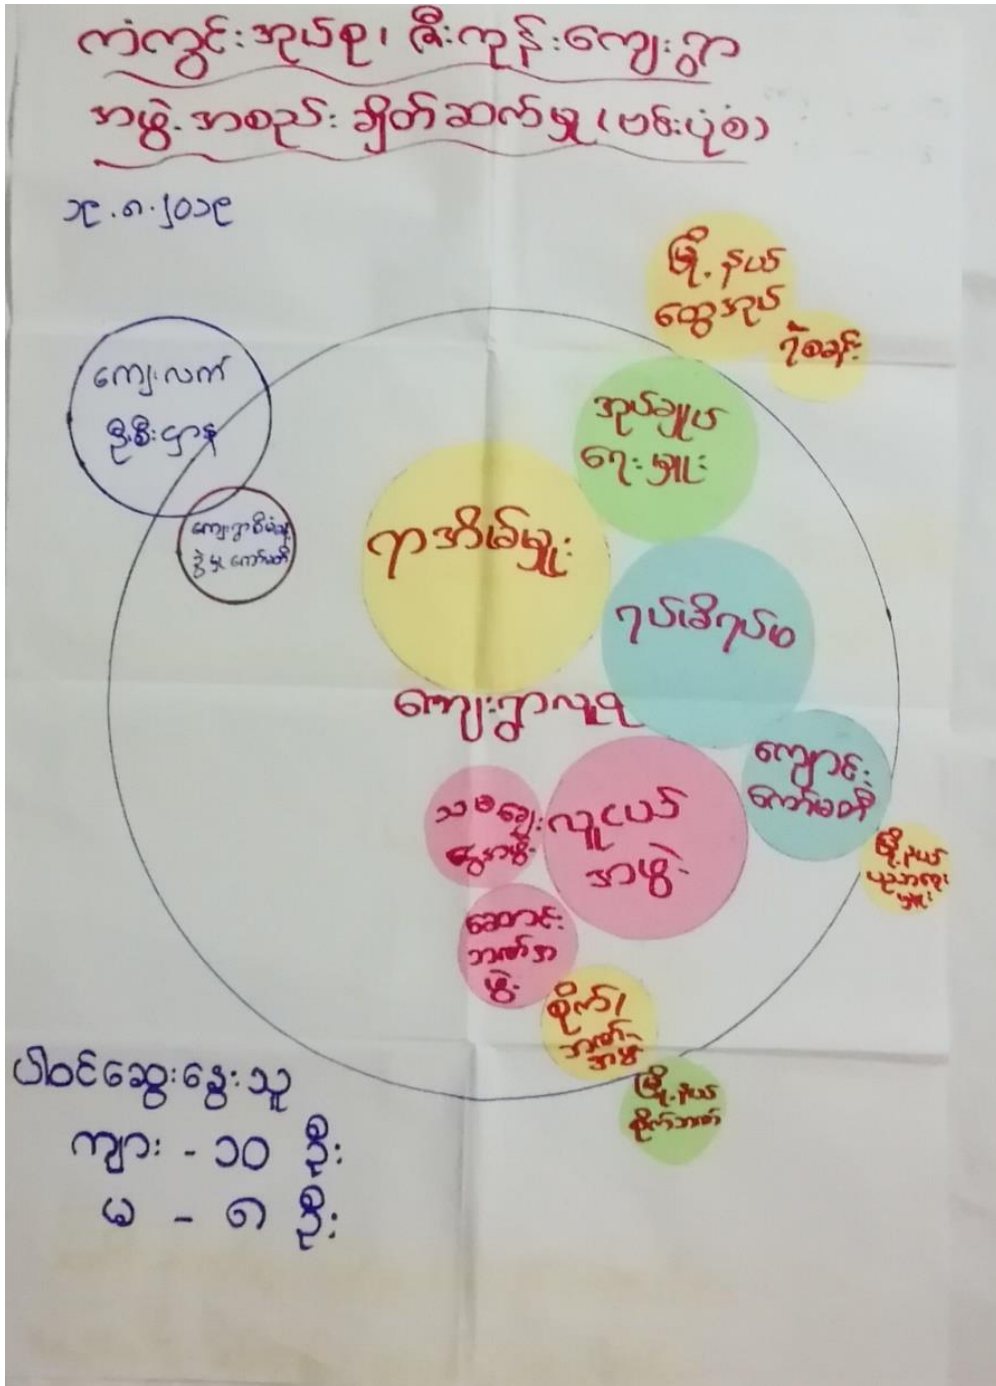 ကံကွင်းအုပ်စု၊ ဇီးကုန်းကျေးရွာ
အဖွဲ့အစည်း ချိတ်ဆက်မှု (ဗင်းပုံစံ)
၁၉.၈.၂၀၁၉
မြို့နယ်
ထွေအုပ်
ရဲစခန်း
ကျေးလက်
ဦးစီးဌာန
အုပ်ချုပ်
ရေးမှူး
ကျေးရွာစီမံ
ခွဲမှု ကော်မတီ
ရာအိမ်မှူး
ရပ်မိရပ်ဖ
ကျေးရွာလူထု
ကျောင်း
ကော်မတီ
လူငယ်
အဖွဲ့
မြို့နယ်
ပညာရေး
မှူး
ချေး
ငွေအဖွဲ့
ဆောင်း
ဘဏ်အ
ဖွဲ့
စိုက်/
ဘဏ်
အဖွဲ့
မြို့နယ်
စိုက်ဘဏ်
ပါဝင်ဆွေးနွေးသူ
ကျား - ၁၀ ဦး
မ - ၈ ဦး